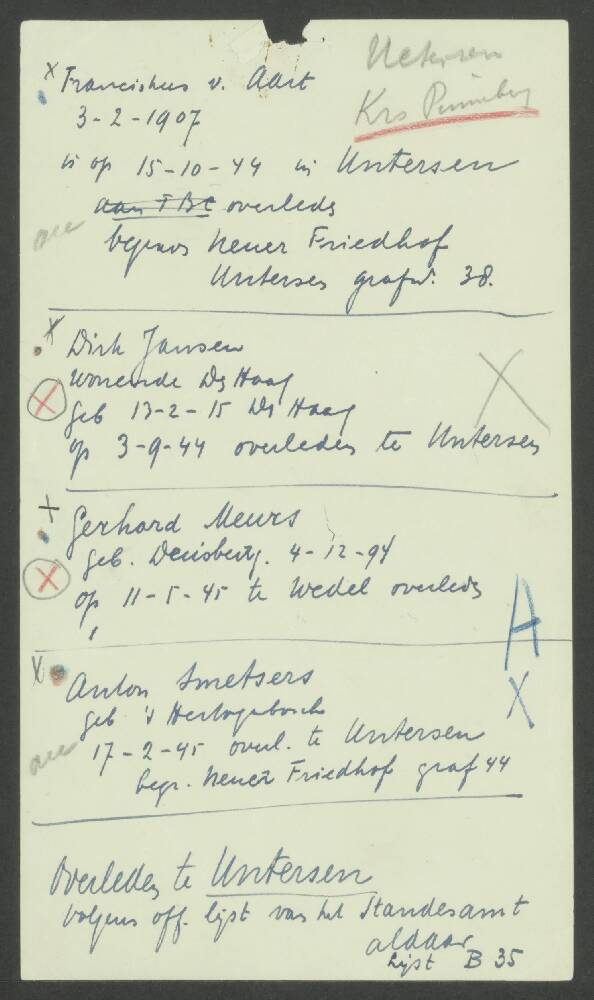 Uetersen
Krs Pinneberg
x Franciskus v. Aart
3-2-1907
is op 15-10-44 in Untersen
aan TBC overleden
begraven Neuer Friedhof
Untersen grafnr. 38.
x Dirk Jansen
wonende Den Haag
X geb 13-2-15 Den Haag
op 3-9-44 overleden te Untersen
X
x Gerhard Meurs
geb. Duisburg. 4-12-94
X op 11-5-45 te Wedel overleden
A
x Anton Smetsers
geb 's Hertogenbosch
X
17-2-45 overl. te Untersen
begr. Neuer Friedhof graf 44
Overleden te Untersen
volgens off. lijst van het Standesamt
aldaar
Lijst B 35